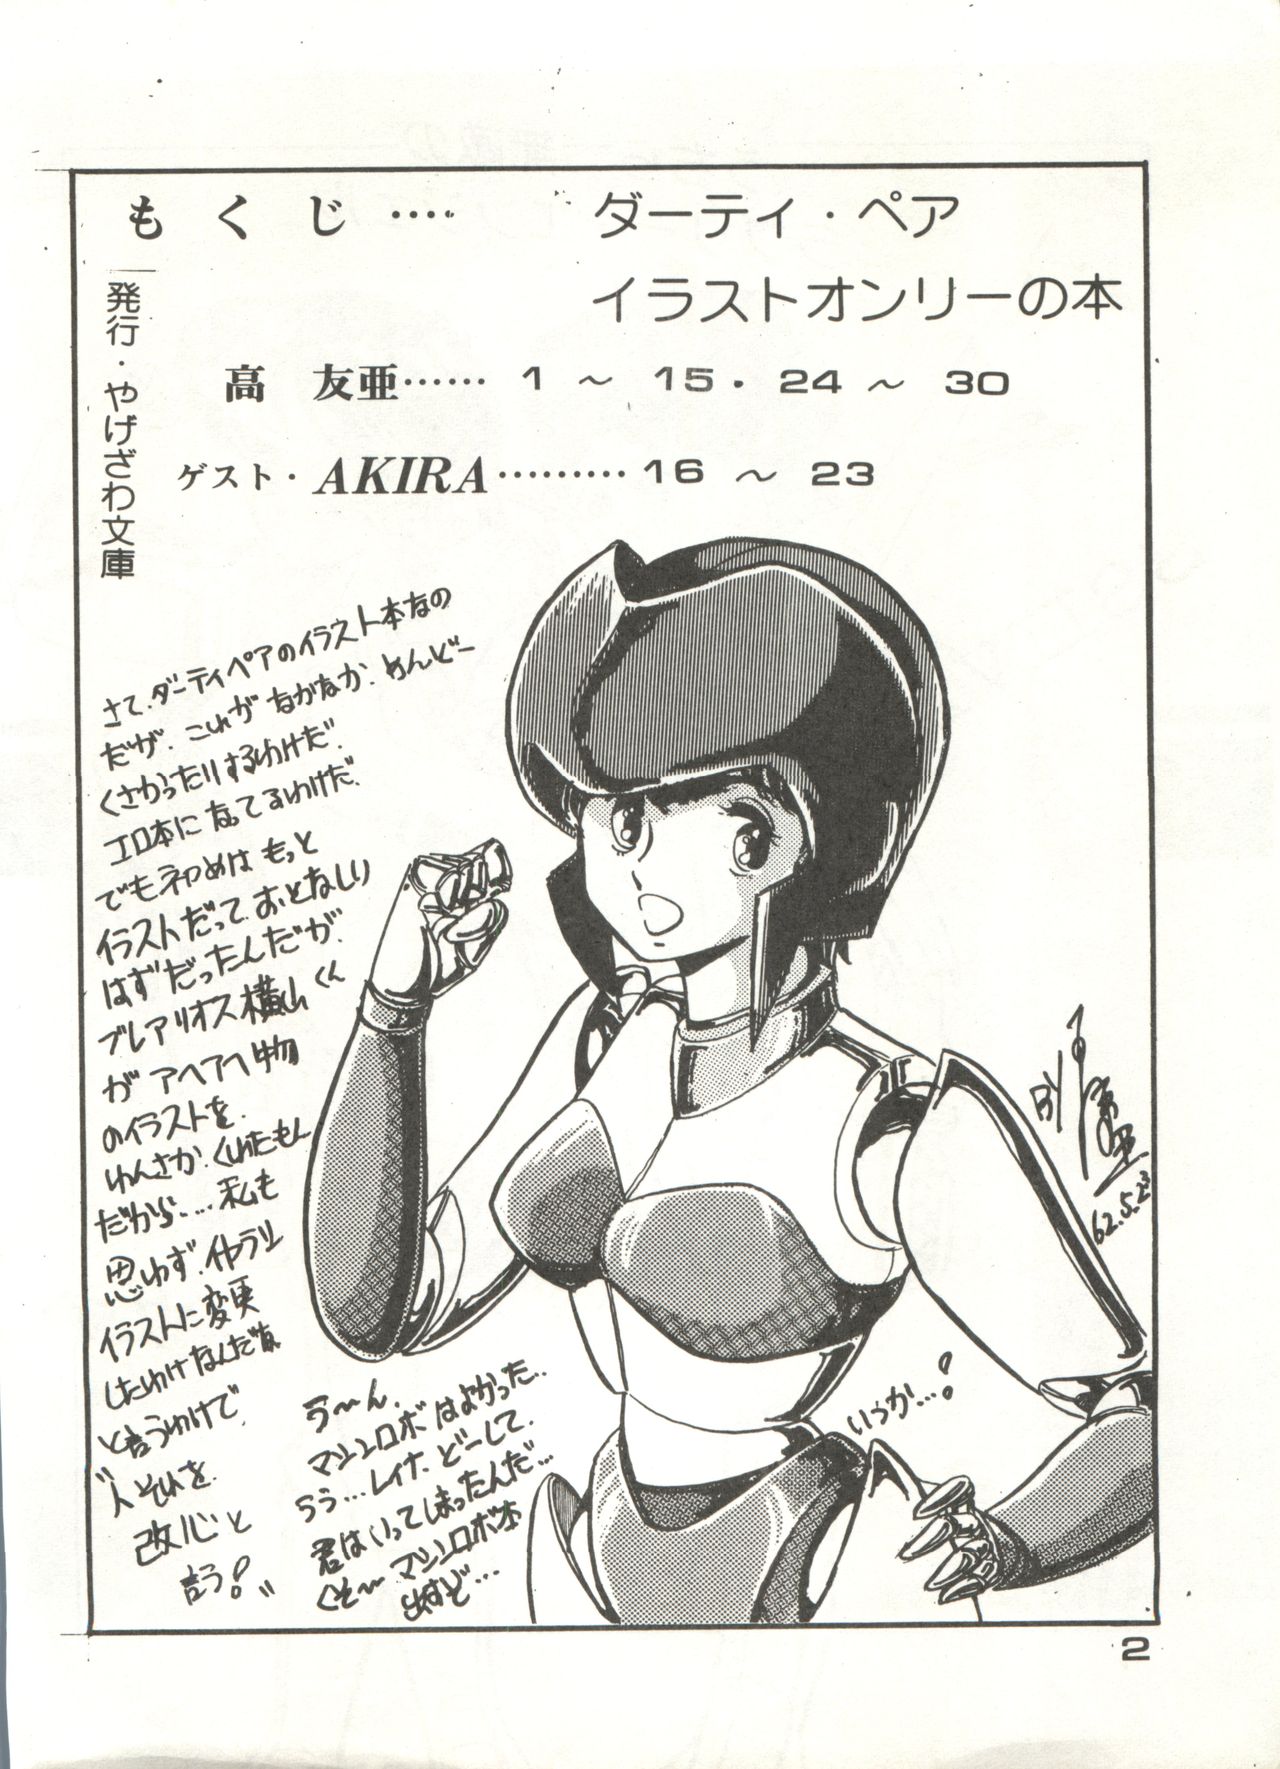 もくじ‥‥
ダーティ・ペア
イラストオンリーの本
発行・やげざわ文庫
高 友亜‥‥‥ 1 ～ 15・24 ～ 30
ゲスト・AKIRA‥‥‥‥‥ 16 ～ 23
さて、ダーティペアのイラスト本なの
だが、これが なかなか、めんどー
くさかったりするわけだ。
エロ本に なってるわけだ。
でも初めは もっと
イラストだって、おとなしい
はずだったんだが、
ブレアリオス横山くん
が アヘアヘ物
のイラストを、
わんさか、くれたもん
だから、…私も
思わず、イヤラシ
イラストに変更
したわけなんだな
と言うわけで、
〝人それを
改心と
言う!〟
う～ん、
マシンロボ はよかった‥
らう…レイナ、どーして、
君はいってしまったんだ…
くそ～ マシンロボ本
出すど…
いつか…!
BY
62.5.23
2